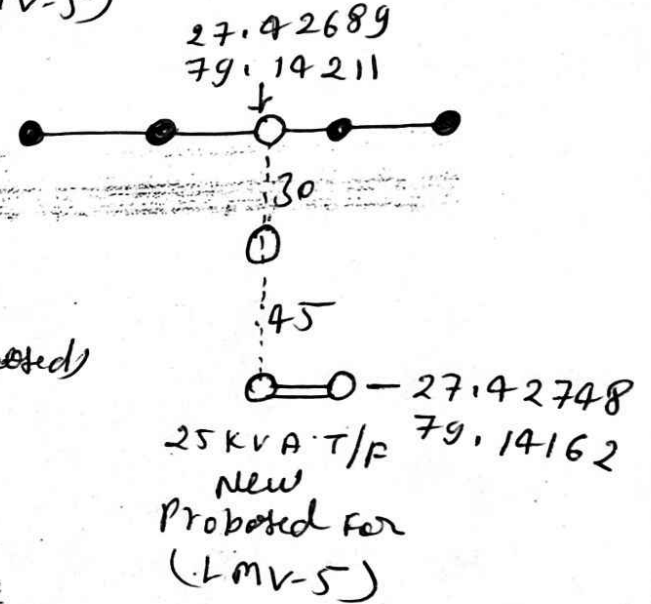 V-5)
27.42689
79.14211
30
45
osed)
27.42748
79.14162
25 KVA T/F
New
Proposed For
(LMV-5)